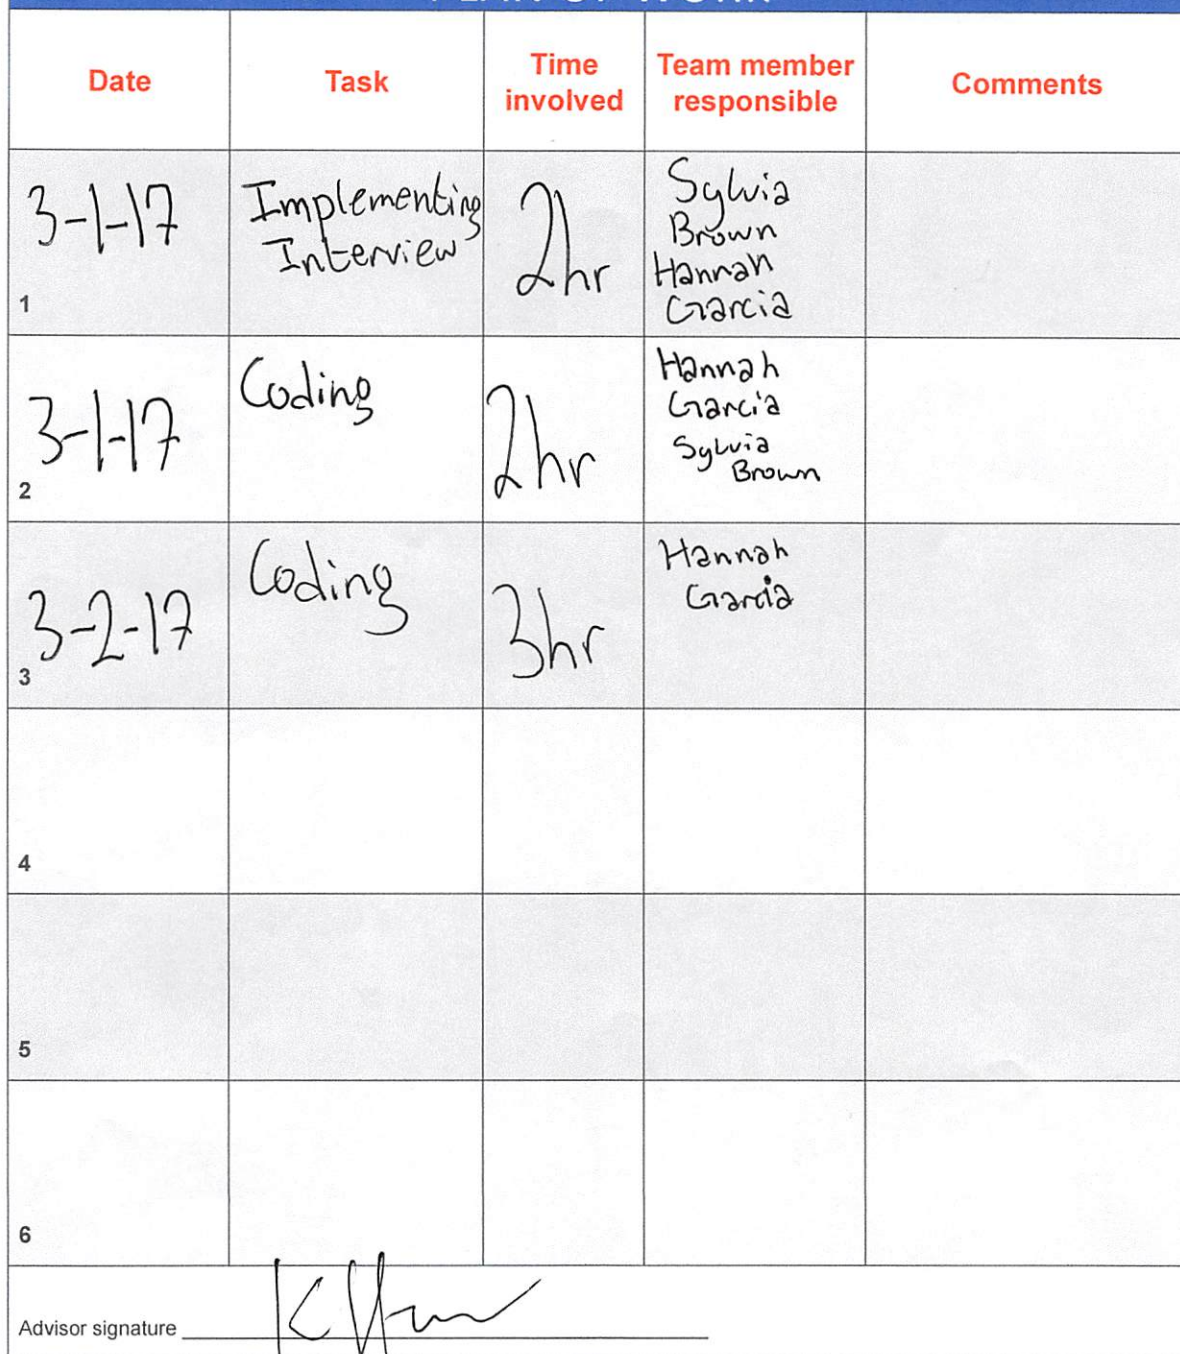 Date Task Time involved Team member responsible Comments
1 3-1-17 Implementing Interview 2hr Sylvia Brown Hannah Garcia
2 3-1-17 Coding 2hr Hannah Garcia Sylvia Brown
3 3-2-17 Coding 3hr Hannah Garcia
4
5
6
Advisor signature